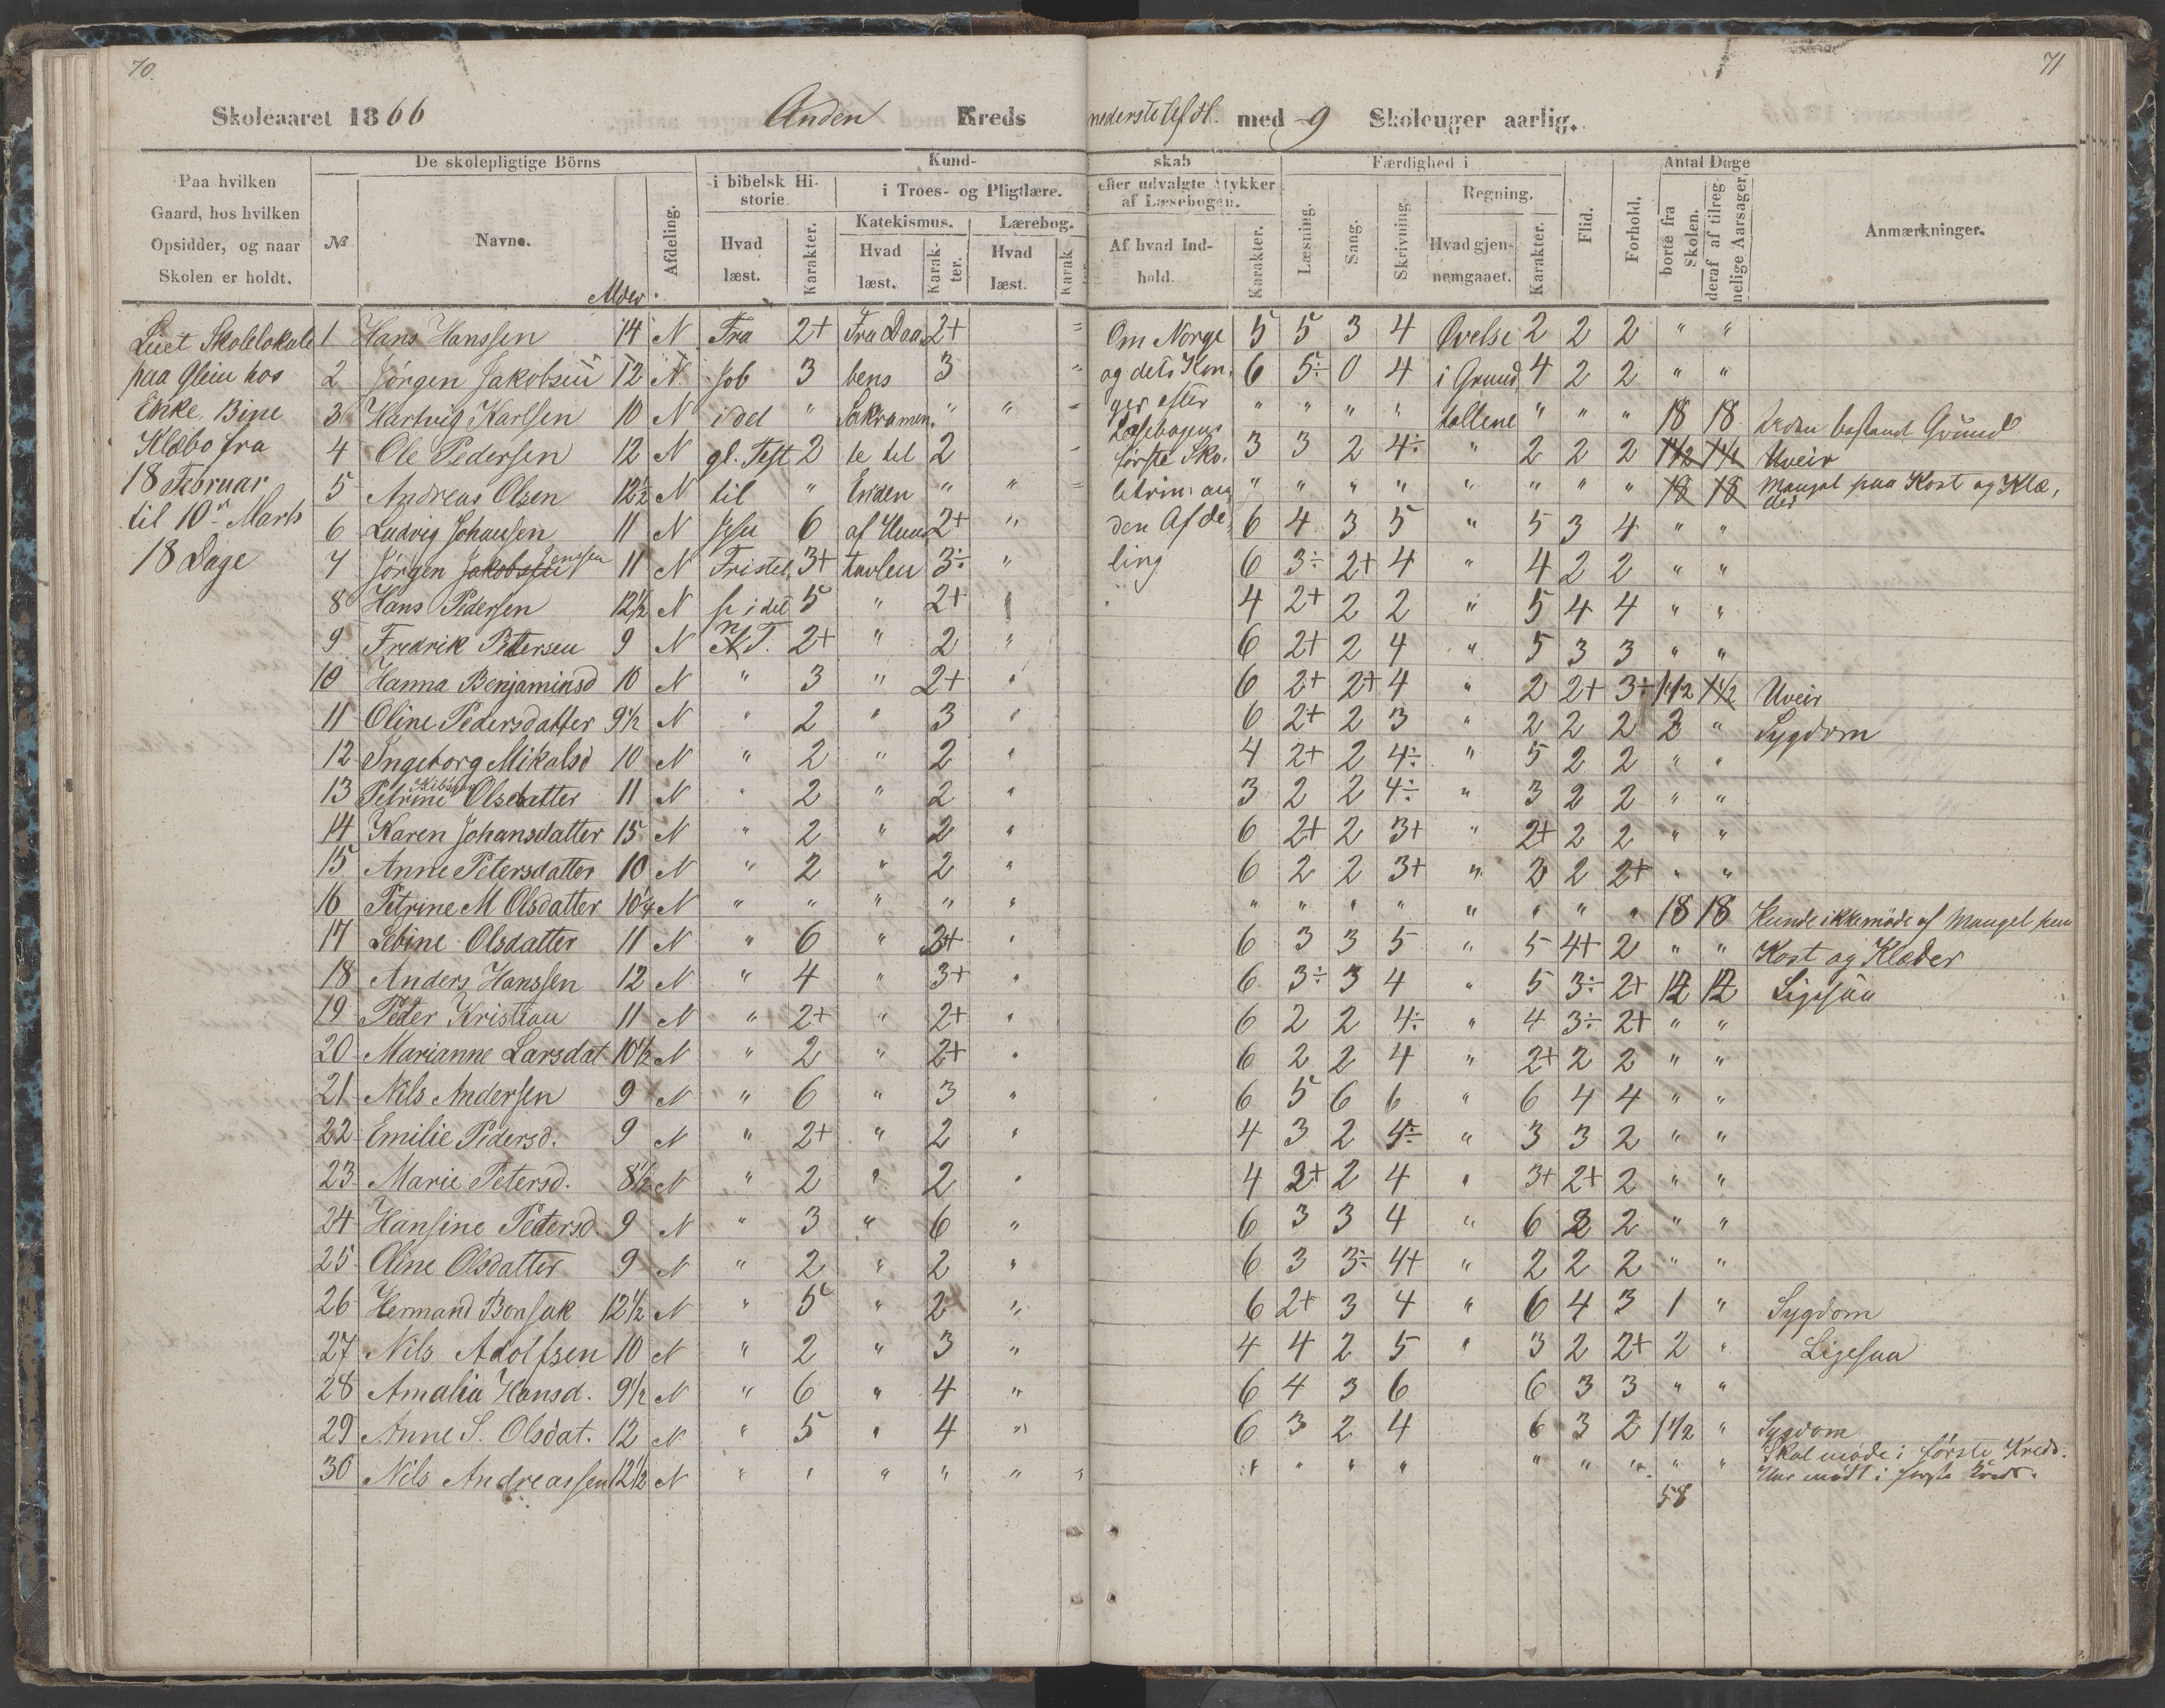 70.
71
Skoleaaret 1866 Anden Kreds nederste Afdl. med 9 Skoleuger aarlig.
Paa hvilken Gaard, hos hvilken Opsidder, og naar Skolen er holdt.
De skolepligtige Börns
№ Navne. Alder. Afdeling.
Kundskab
i bibelsk Historie. Hvad læst. Karakter.
i Troes- og Pligtlære.
Katekismus. Hvad læst. Karakter.
Lærebog. Hvad læst. Karakter
efter udvalgte Stykker af Læsebogen. Af hvad Indhold. Karakter.
Færdighed i
Læsning. Sang. Skrivning. Regning. Hvad gjennemgaaet. Karakter.
Flid. Forhold.
Antal Dage
borte fra Skolen. deraf af tilregnelige Aarsager.
Anmærkninger.
Leiet Skolelokale
paa Glein hos
Enke Bine
Klæbo fra
18 Februar
til 10 Marts
18 Dage
1 Hans Hanssen 14 N Fra 2+ Fra Daa 2+ " Om Norge 5 5 3 4 Øvelse 2 2 2 " "
2 Jörgen Jakobsen 12 N. Job 3 bens 3 " og dets Kon, 6 5÷ 0 4 i Grund, 4 2 2 " "
3 Hartvig Karlsen 10 N i det " Sakramen, " " " ger efter " " " " tallene " " " 18 18 Uden bestemt Grund
4 Ole Pedersen 12 N gl. Test 2 te til 2 " Læsebogens förste Sko, 3 3 2 4÷ " 2 2 2 1 1/2 1 1/2 Uveir
5 Andreas Olsen 12 1/2 N til " Enden " " " " " " " " " " 18 18 Mangel paa Kost og Klæ, der
6 Ludvig Johansen 11 N Jesu 6 af Huus 2+ " den Afde 6 4 3 5 " 5 3 4 " "
7 Jörgen Jakobsen Jenssen 11 N Fristel, 3+ tavlen 3÷ " ling 6 3÷ 2+ 4 " 4 2 2 " "
8 Hans Pedersen 12 1/2 N se i det 5 " 2+ 4 2+ 2 2 " 5 4 4 " "
9 Fredrik Petersen 9 N N. T. 2+ " 2 " 6 2+ 2 4 " 5 3 3 " "
10 Hanna Benjaminsd 10 N " 3 " 2+ " 6 2+ 2+ 4 " 2 2+ 3÷ 1 1/2 1 1/2 Uveir
11 Oline Pedersdatter 9 1/2 N " 2 " 3 " 6 2+ 2 3 " 2 2 2 3 " Sygdom
12 Ingeborg Mikalsd 10 N " 2 " 2 " 4 2+ 2 4÷ " 5 2 2 " "
13 Petrine Olsdatter 11 N " 2 " 2 " 3 2 2 4÷ " 3 2 2 " "
14 Karen Johansdatter 15 N " 2 " 2 " 6 2+ 2 3+ " 2+ 2 2 " "
15 Anne Petersdatter 10 N " 2 " 2 " 6 2 2 3+ " 2 2 2+ " "
16 Petrine M Olsdatter 10 1/4 N " " " " " " " " " " " " " 18 18 Kunde ikke möde af Mangel paa
17 Sebine Olsdatter 11 N " 6 " 3+ " 6 3 3 5 " 5 4+ 2 " " Kost og Klæder
18 Anders Hanssen 12 N " 4 " 3+ " 6 3÷ 3 4 " 5 3÷ 2+ 12 12 Ligesaa
19 Peder Kristian 11 N " 2+ " 2+ " 6 2 2 4÷ " 4 3÷ 2+ " "
20 Marianne Larsdat. 10 1/2 N " 2 " 2+ " 6 2 2 4 " 2+ 2 2 " "
21 Nils Andersen 9 N " 6 " 3 " 6 5 6 6 " 6 4 4 " "
22 Emilie Pedersd. 9 N " 2+ " 2 " 4 3 2 4÷ " 3 3 2 " "
23 Marie Petersd. 8 1/2 N " 2 " 2 " 4 2+ 2 4 " 3+ 2+ 2 " "
24 Hansine Petersd. 9 N " 3 " 6 " 6 3 3 4 " 6 2 2 " "
25 Oline Olsdatter 9 N " 2 " 2 " 6 3 3÷ 4+ " 2 2 2 " "
26 Hermand Bonsak 12 1/2 N " 5 " 2 " 6 2+ 3 4 " 6 4 3 1 " Sygdom
27 Nils Adolfsen 10 N " 2 " 3 " 4 4 2 5 " 3 2 2+ 2 " Ligesaa
28 Amalia Hansd. 9 1/2 N " 6 " 4 " 6 4 3 6 6 3 3 " "
29 Anne S. Olsdat. 12 N " 5 " 4 " 6 3 2 4 6 3 2 1 1/2 " Sygdom
30 Nils Andreassen 12 1/2 N " " " " " " " " " " " " " " " Skal möde i förste Kreds.
Har mödt i förste Kreds.
58